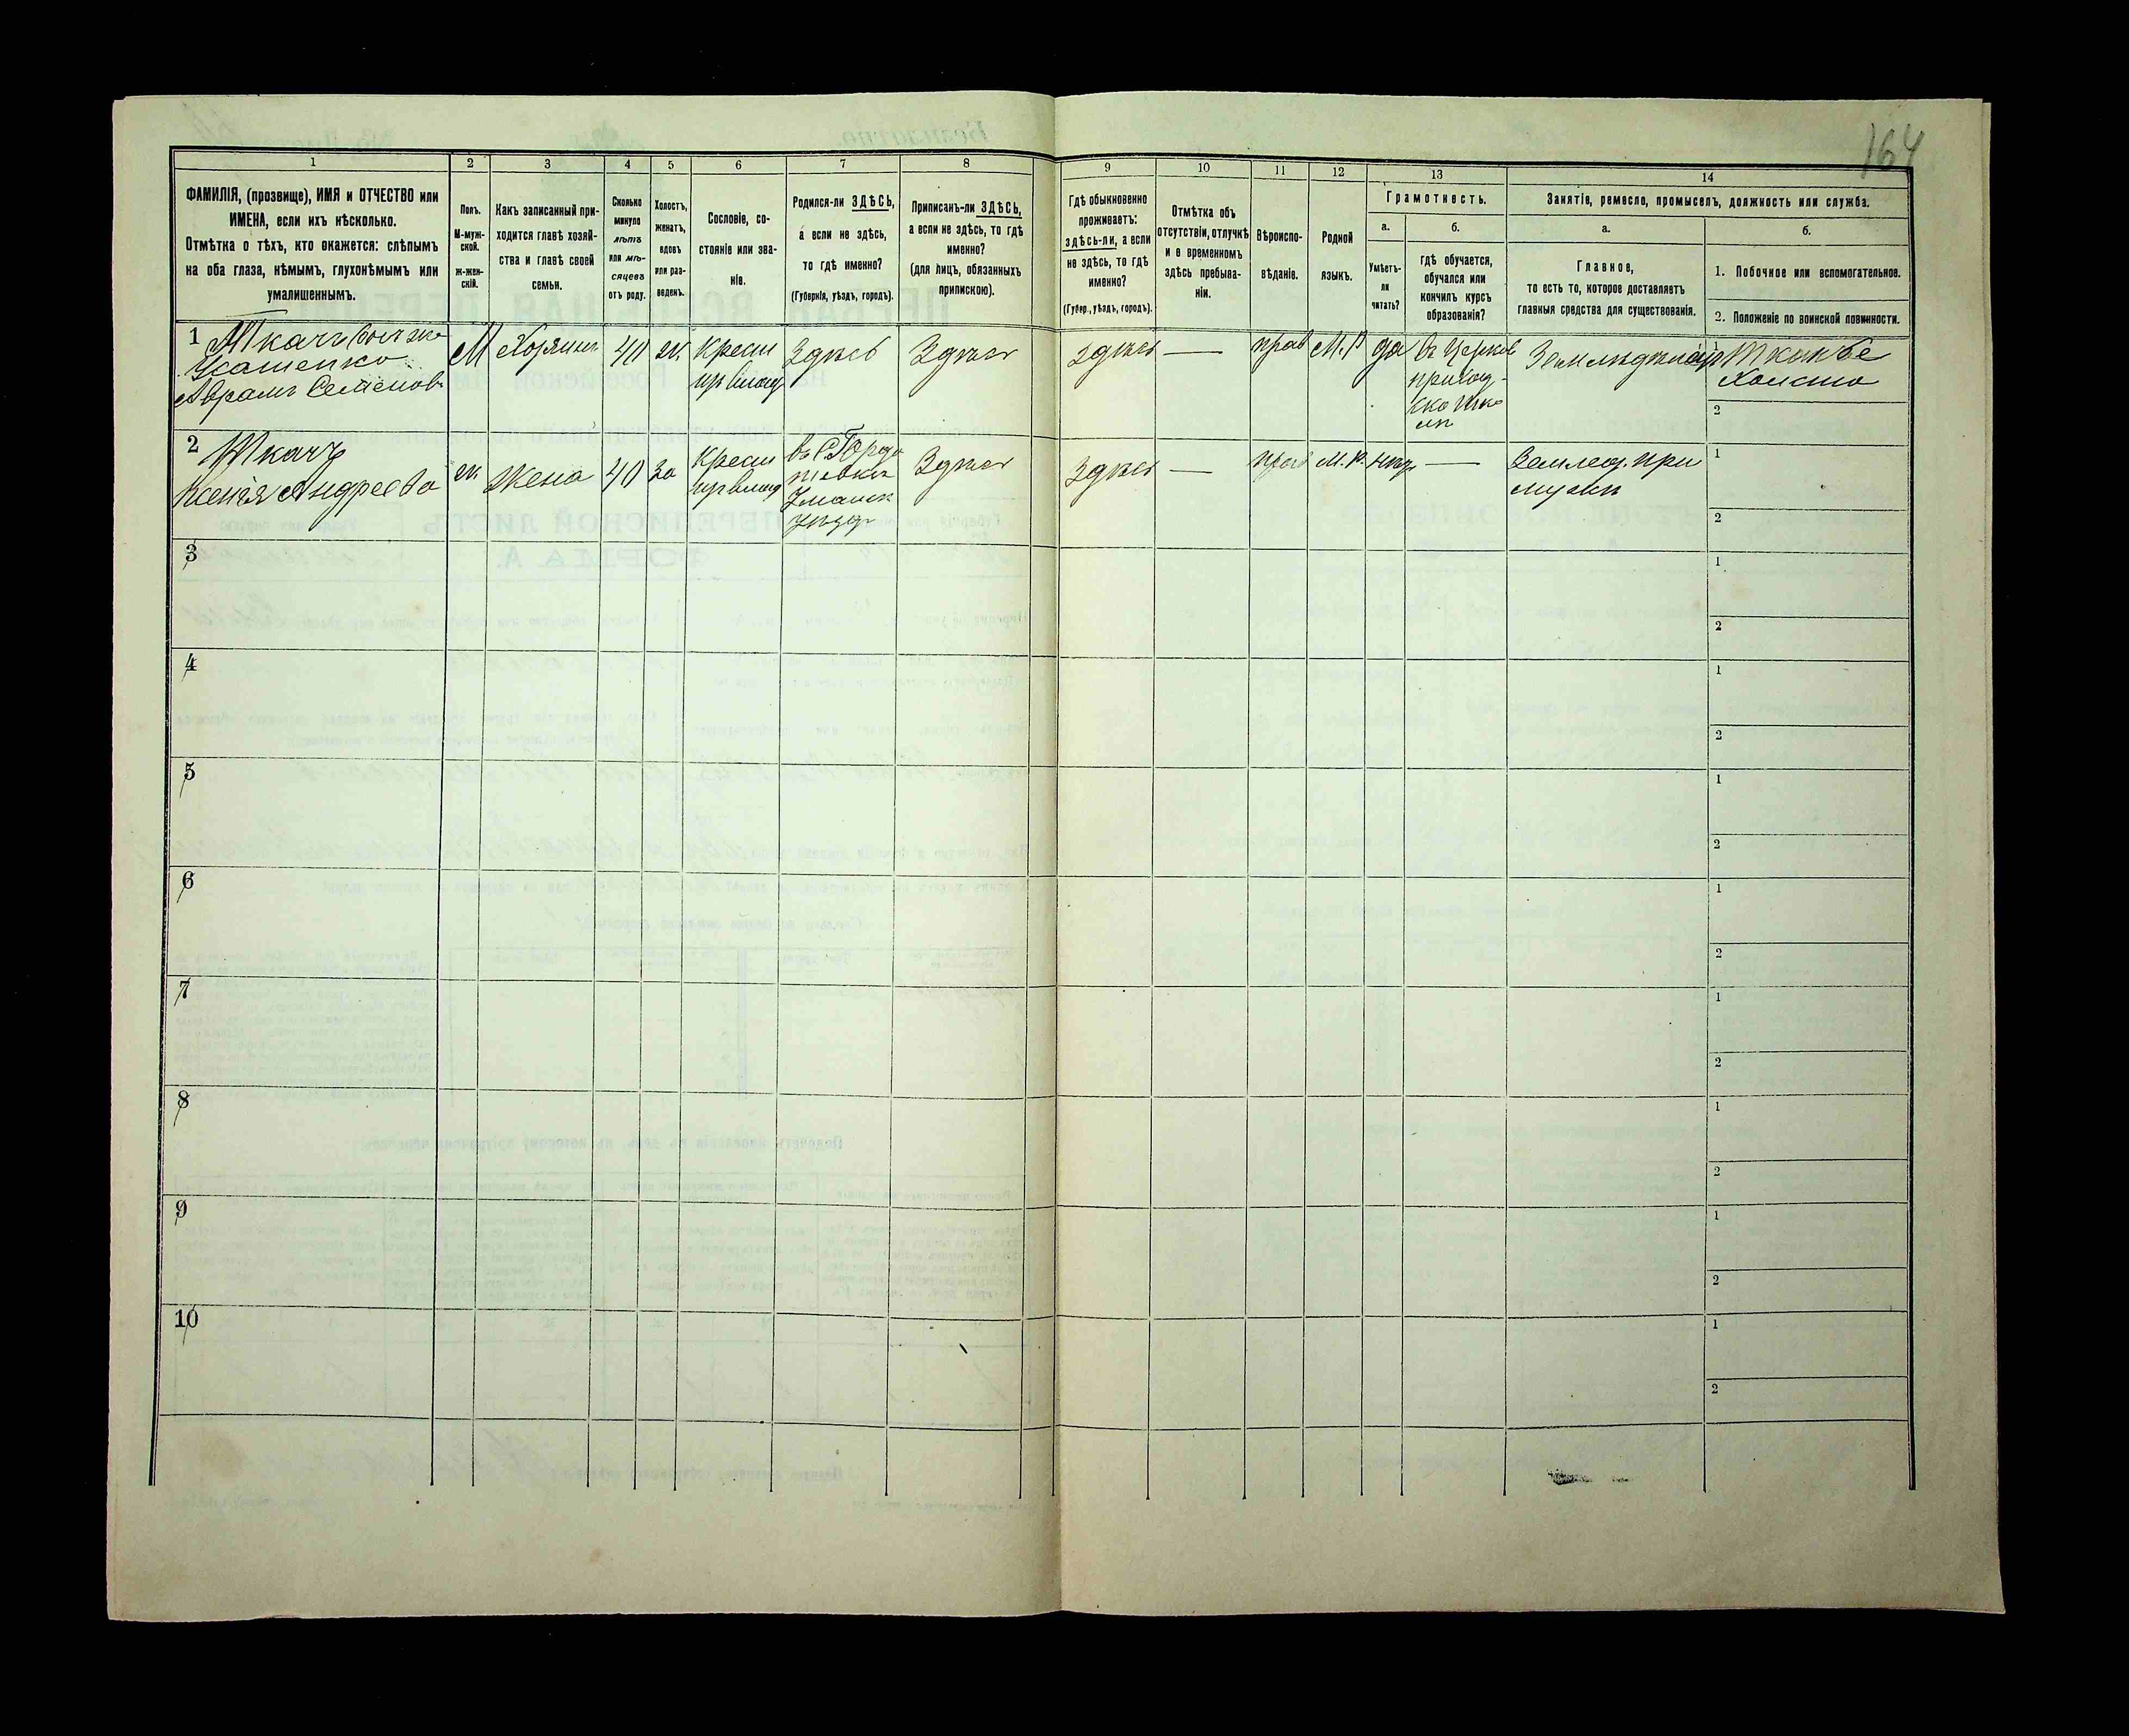 164
1
2
3
4
5
6
7
8
9
10
11
12
13
14
ФАМИЛІЯ, (прозвище), ИМЯ и ОТЧЕСТВО или
ИМЕНА, если ихъ нѣсколько.
Отмѣтка о тѣхъ, кто окажется: слѣпымъ
на оба глаза, нѣмымъ, глухонѣмымъ или
умалишеннымъ.
Полъ.
М-муж-
ской.
ж-жен-
скій.
Какъ записанный при-
ходится главѣ хозяй-
ства и главѣ своей
семьи.
Сколько
минуло
лѣтъ
или мѣ-
сяцевъ
отъ роду.
Холостъ,
женатъ,
вдовъ
или раз-
веденъ.
Сословіе, со-
стояніе или зва-
ніе.
Родился-ли ЗДѢСЬ,
а если не здѣсь,
то гдѣ именно?
(Губернія, уѣздъ, городъ).
Приписанъ-ли ЗДѢСЬ,
а если не здѣсь, то гдѣ
именно?
(для лицъ, обязанныхъ
припискою).
Гдѣ обыкновенно
проживаетъ:
здѣсь-ли, а если
не здѣсь, то гдѣ
именно?
(Губер., уѣздъ, городъ).
Отмѣтка объ
отсутствіи, отлучкѣ
и о временномъ
здѣсь пребыва-
ніи.
Вѣроиспо-
вѣданіе.
Родной
языкъ.
Грамотность.
а.
Умѣетъ-
ли
читать?
б.
гдѣ обучается,
обучался или
кончилъ курсъ
образованія?
Занятіе, ремесло, промыселъ, должность или служба.
а.
Главное,
то есть то, которое доставляетъ
главныя средства для существованія.
б.
1. Побочное или вспомогательное.
2. Положеніе по воинской повинности.
1 Ткачъ
Аврамъ Семенов
М
Хозяинъ
40
ж.
Крест
Здѣсь
Здѣсь
здѣсь
—
прав
М.Р
да
въ Церков
приход-
ско Шко
лѣ
1
Холста
2
2 Ткачъ
Ксенія Андреева
ж.
Жена
40
за
Крест
Уманск
уѣзд
Здѣсь
Здѣсь
—
прав
М.Р.
нѣт
—
Землед. при
мужѣ
1
2
3
1
2
4
1
2
5
1
2
6
1
2
7
1
2
8
1
2
9
1
2
10
1
2